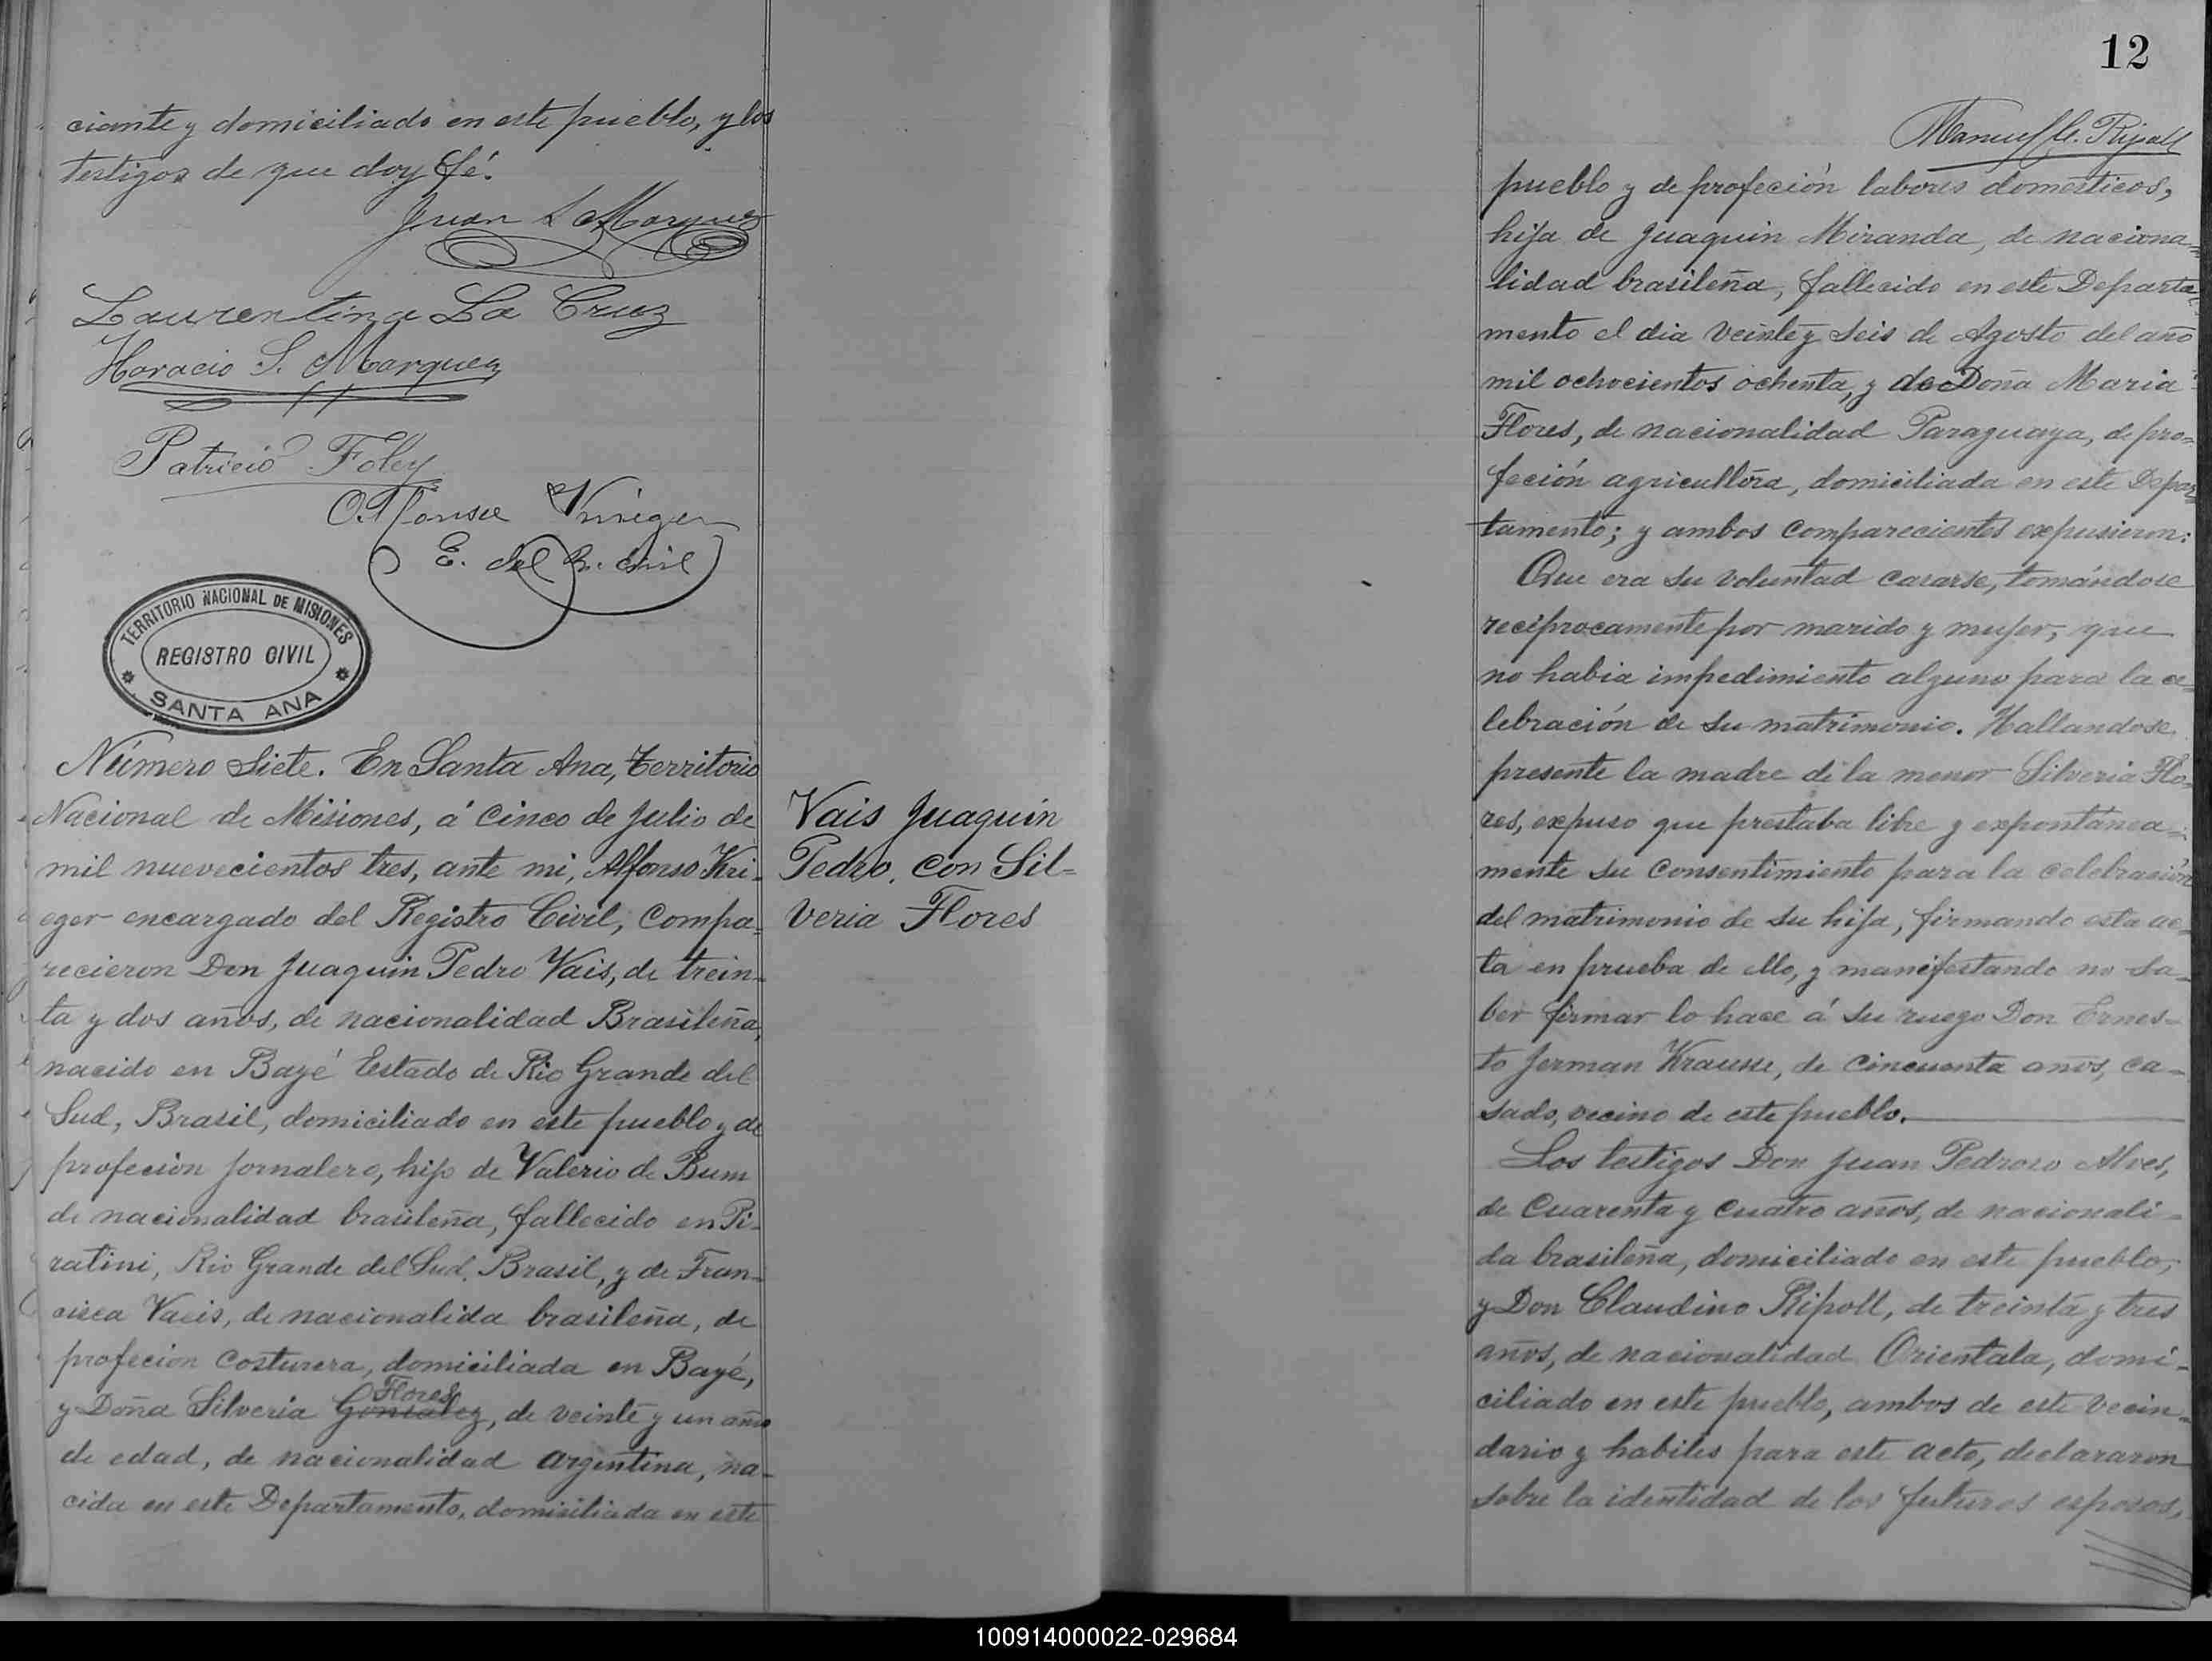 ciante y domiciliado en este pueblo, y los
testigos de que doy fé.
Juan S Marquez
Laurentina La Cruz
Horacio S. Marquez
Patricio Foley
Alfonso Krieger
E. del R. Civil
TERRITORIO NACIONAL DE MISIONES
REGISTRO CIVIL
SANTA ANA
Número Siete. En Santa Ana, Territorio
Nacional de Misiones, á Cinco de Julio de
mil nuevecientos tres, ante mi, Alfonso Kri-
eger encargado del Registro Civil, Compa=
recieron Don Juaquin Pedro Vais, de trein-
ta y dos años, de nacionalidad Brasileña,
nacido en Bayé Estado de Rio Grande del
Sud, Brasil, domiciliado en este pueblo y de
profecion Jornalero, hijo de Valerio de Bum
de nacionalidad brasileña, fallecido en Pi-
ratini, Rio Grande del Sud, Brasil, y de Fran-
cisca Vaeis, de nacionalida brasileña, de
profecion Costurera, domiciliada en Bayé,
Flores
y Doña Silveria Gonsalez, de veinte y un años
de edad, de nacionalidad argentina, na-
cida en este Departamento, domiciliada en este
Vais Juaquin
Pedro, con Sil=
veria Flores
12
Manuel C. Ripoll
pueblo y de profeción labores domesticos,
hija de Juaquin Miranda, de naciona=
lidad brasileña, fallecido en este Departa
mento el dia veinte y seis de Agosto del año
mil ochocientos ochenta, y de Doña Maria
Flores, de nacionalidad Paraguaya, de pro=
feción agricultora, domiciliada en este Depar
tamento; y ambos Comparecientes expusieron:
Que era su voluntad casarse, tomándose
reciprocamente por marido y mujer, que
no habia impedimiento alguno para la ce=
lebración de su matrimonio. Hallandose
presente la madre de la menor Silveria Flo-
res, expuso que prestaba libre y expontánea-
mente su Consentimiento para la celebración
del matrimonio de su hija, firmando esta ac-
ta en prueba de ello, y manifestando no sa-
ber firmar lo hace á su ruego Don Ernes-
to Jerman Krausse, de Cincuenta años, ca-
sado, vecino de este pueblo.
Los testigos Don Juan Pedroso Alves,
de Cuarenta y Cuatro años, de nacionali-
da brasileña, domiciliado en este pueblo,
y Don Claudino Ripoll, de treinta y tres
años, de nacionalidad Orientala, domi-
ciliado en este pueblo, ambos de este vecin-
dario y habiles para este acto, declararon
sobre la identidad de los futuros esposos,
100914000022-029684